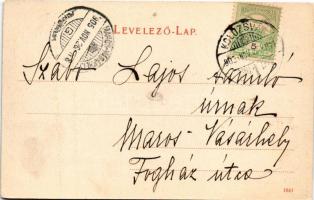 LEVELEZŐ-LAP.
KOLOZSV
5
Szabó Lajos tanuló
úrnak
Maros-Vásárhely
Fogház útca